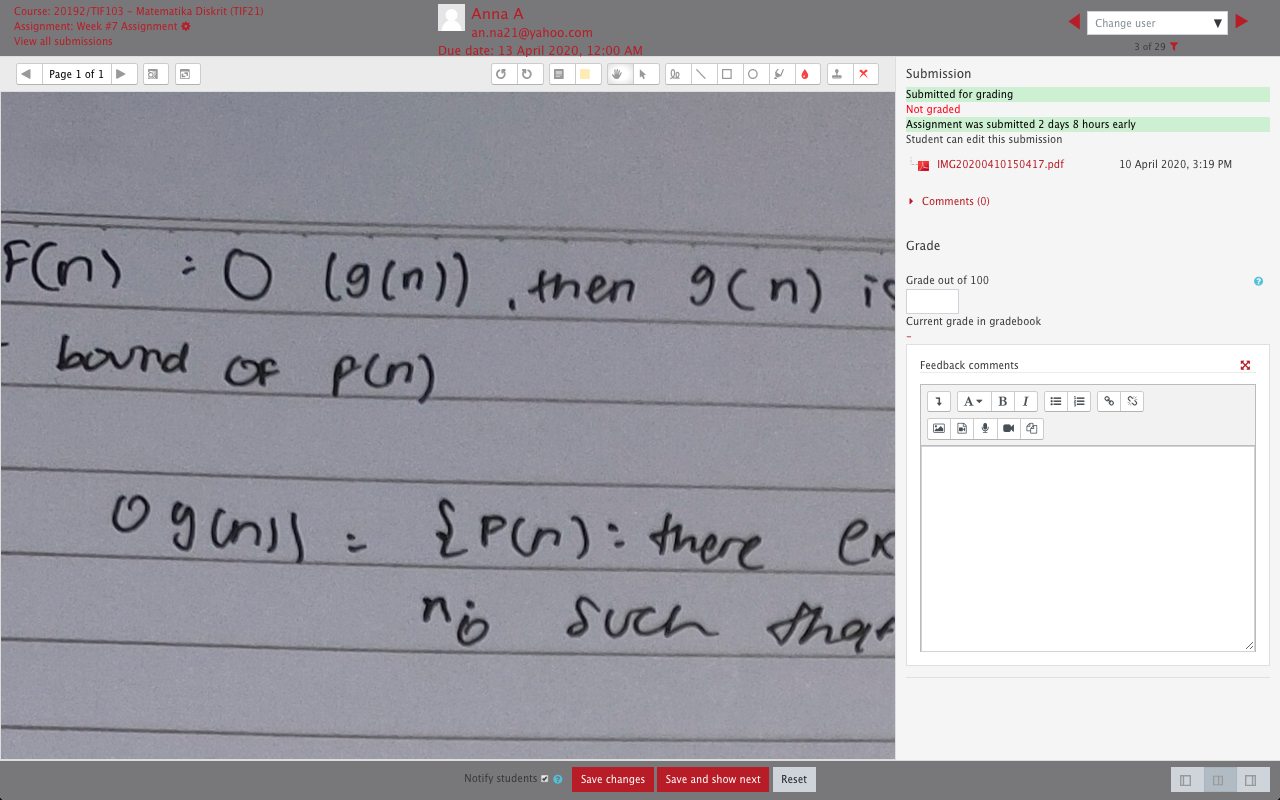 Course: 20192/TIF103 - Matematika Diskrit (TIF21)
Assignment: Week #7 Assignment
View all submissions
Anna A
an.na21@yahoo.com
Due date: 13 April 2020, 12:00 AM
Change user
3 of 29
Page 1 of 1
F(n) = O (g(n)), then g(n) is
bound of F(n)
O g(n)) = {F(n) : there ex
n0 such that
Submission
Submitted for grading
Not graded
Assignment was submitted 2 days 8 hours early
Student can edit this submission
IMG20200410150417.pdf 10 April 2020, 3:19 PM
Comments (0)
Grade
Grade out of 100
Current grade in gradebook
-
Feedback comments
A B I
Notify students Save changes Save and show next Reset